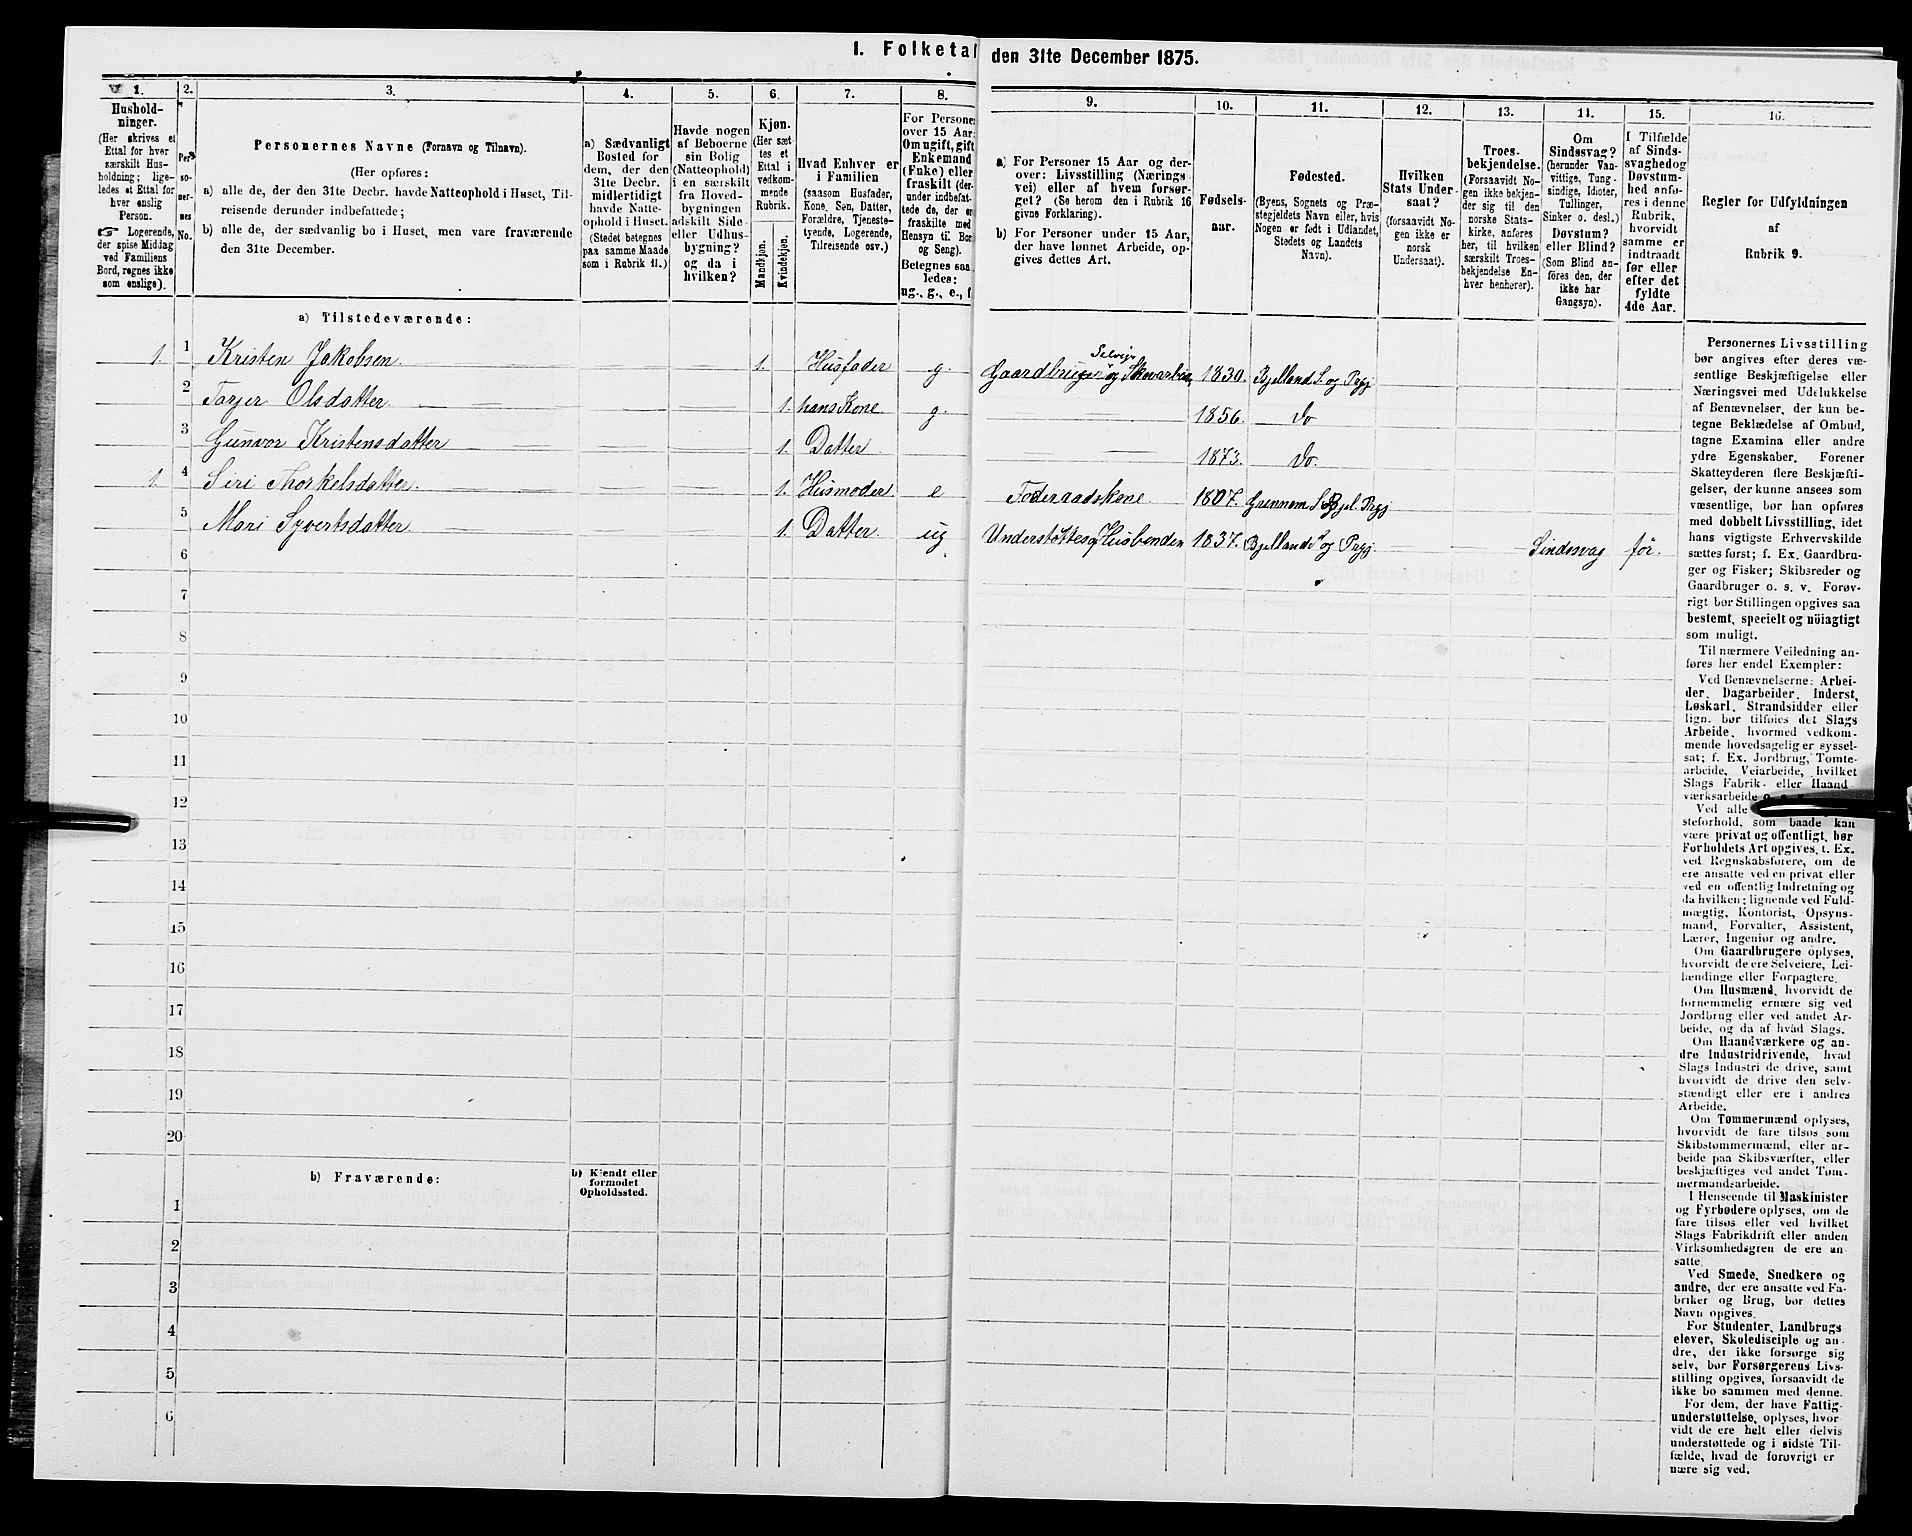 I. Folketal den 31te December 1875.
1. 2. 3. 4. 5. 6. 7. 8. 9. 10. 11. 12. 13. 14. 15. 16.
Hushold-
ninger.
(Her skrives et
Ettal for hver
særskilt Hus-
holdning; lige-
ledes et Ettal for
hver enslig
Person.
☞ Logerende,
der spise Middag
ved Familiens
Bord, regnes ikke
som enslige).
Per-
so-
ner-
nes
No.
Personernes Navne (Fornavn og Tilnavn).
(Her opføres:
a) alle de, der den 31te Decbr. havde Natteophold i Huset, Til-
reisende derunder indbefattede;
b) alle de, der sædvanlig bo i Huset, men vare fraværende
den 31te December.
a) Sædvanligt
Bosted for
dem, der den
31te Decbr.
midlertidigt
havde Natte-
ophold i Huset.
(Stedet betegnes
paa samme Maade
som i Rubrik 11.)
Havde nogen
af Beboerne
sin Bolig
(Natteophold)
i en særskilt
fra Hoved-
bygningen
adskilt Side-
eller Udhus-
bygning?
og da i
hvilken?
Kjøn.
(Her sæt-
tes et
Ettal i
vedkom-
mende
Rubrik.
Mandkjøn.
Kvindekjøn.
Hvad Enhver er
i Familien
(saasom Husfader,
Kone, Søn, Datter,
Forældre, Tjeneste-
tyende, Logerende,
Tilreisende osv.).
For Personer
over 15 Aar:
Om ugift, gift,
Enkemand
(Enke) eller
fraskilt (der-
under indbefat-
tede de, der er
fraskilte med
Hensyn til Bor
og Seng).
Betegnes saa-
ledes:
ug., g., e., f
a) For Personer 15 Aar og der-
over: Livsstilling (Nærings-
vei) eller af hvem forsør-
get? (Se herom den i Rubrik 16
givne Forklaring).
b) For Personer under 15 Aar,
der have lønnet Arbeide, op-
gives dettes Art.
Fødsels-
aar.
Fødested.
(Byens, Sognets og Præ-
stegjeldets Navn eller, hvis
Nogen er født i Udlandet,
Stedets og Landets
Navn).
Hvilken
Stats Under-
saat?
(forsaavidt No-
gen ikke er
norsk
Undersaat).
Troes-
bekjendelse.
(Forsaavidt No-
gen ikke bekjen-
der sig til den
norske Stats-
kirke, anføres
her, til hvilken
særskilt Troes-
bekjendelse En-
hver henhører).
Om
Sindssvag?
(herunder Van-
vittige, Tung-
sindige, Idioter,
Tullinger,
Sinker o. desl.)
Døvstum?
eller Blind?
(Som Blind an-
føres den, der
ikke har
Gangsyn).
I Tilfælde
af Sinds-
svaghed og
Døvstum-
hed anfø-
res i denne
Rubrik,
hvorvidt
samme er
indtraadt
før eller
efter det
fyldte
4de Aar.
Regler for Udfyldningen
af
Rubrik 9.
a) Tilstedeværende:
1. 1 Kristen Jakobsen. 1. Husfader g. Gaardbruger Selveier og Skovarbeid 1830. Bjelland S. og Prgj
2 Tarjer Olsdatter. 1. hans Kone. g. 1856. do
3 Gunvor Kristensdatter 1. Datter 1873. do.
1. 4 Siri Thorkelsdatter. 1. Husmoder e Foderaadskone. 1807. Grennem S. Bjel. Prgj
5 Mari Syvertsdatter 1. Datter ug Understøttes af Husbonden 1837. Bjellands og Prgj. Sindssvag før.
6
7
8
9
10
11
12
13
14
15
16
17
18
19
20
b) Fraværende:
b) Kjendt eller
formodet
Opholdssted.
1
2
3
4
5
6
Personernes Livsstilling
bør angives efter deres væ-
sentlige Beskjæftigelse eller
Næringsvei med Udelukkelse
af Benævnelser, der kun be-
tegne Beklædelse af Ombud,
tagne Examina eller andre
ydre Egenskaber. Forener
Skatteyderen flere Beskjæfti-
gelser, der kunne ansees som
væsentlige, bør han opføres
med dobbelt Livsstilling, idet
hans vigtigste Erhvervskilde
sættes først; f. Ex. Gaardbru-
ger og Fisker; Skibsreder og
Gaardbruger o. s. v. Forøv-
rigt bør Stillingen opgives saa
bestemt, specielt og nöiagtigt
som muligt.
Til nærmere Veiledning an-
føres her endel Exempler:
Ved Benævnelserne: Arbei-
der, Dagarbeider, Inderst,
Løskarl, Strandsidder eller
lign. bør tilføies det Slags
Arbeide, hvormed vedkom-
mende hovedsagelig er syssel-
sat; f. Ex. Jordbrug, Tomte-
arbeide, Veiarbeide, hvilket
Slags Fabrik- eller Haand-
værksarbeide
Ved alle
steforhold, som baade kan
være privat og offentligt, bør
Forholdets Art opgives, t. Ex.
ved Regnskabsførere, om de
ere ansatte ved en privat eller
ved en offentlig Indretning og
da hvilken; lignende ved Fuld-
mægtig, Kontorist, Opsyns-
mand, Forvalter, Assistent,
Lærer, Ingeniør og andre.
Om Gaardbrugere oplyses,
hvorvidt de ere Selveiere, Lei-
lændinge eller Forpagtere.
Om Husmænd, hvorvidt de
fornemmelig ernære sig ved
Jordbrug eller ved andet Ar-
beide, og da af hvad Slags.
Om Haandværkere og an-
dre Industridrivende, hvad
Slags Industri de drive, samt
hvorvidt de drive den selv-
stændigt eller ere i andres
Arbeide.
Om Tømmermænd oplyses,
hvorvidt de fare tilsøs som
Skibstømmermænd, eller ar-
beide paa Skibsværfter, eller
beskjæftiges ved andet Tøm-
mermandsarbeide.
I Henseende til Maskinister
og Fyrbødere oplyses, om de
fare tilsøs eller ved hvilket
Slags Fabrikdrift eller anden
Virksomhedsgren de ere an-
satte.
Ved Smede, Snedkere og
andre, der ere ansatte ved Fa-
briker og Brug, bør dettes
Navn opgives.
For Studenter, Landbrugs-
elever, Skoledisciple og an-
dre, der ikke forsørge sig
selv, bør Forsørgerens Livs-
stilling opgives, forsaavidt de
ikke bo sammen med denne.
For dem, der have Fattig-
understøttelse, oplyses, hvor-
vidt de ere helt eller delvis
understøttede og i sidste Til-
fælde, hvad de forøvrigt er-
nære sig ved.